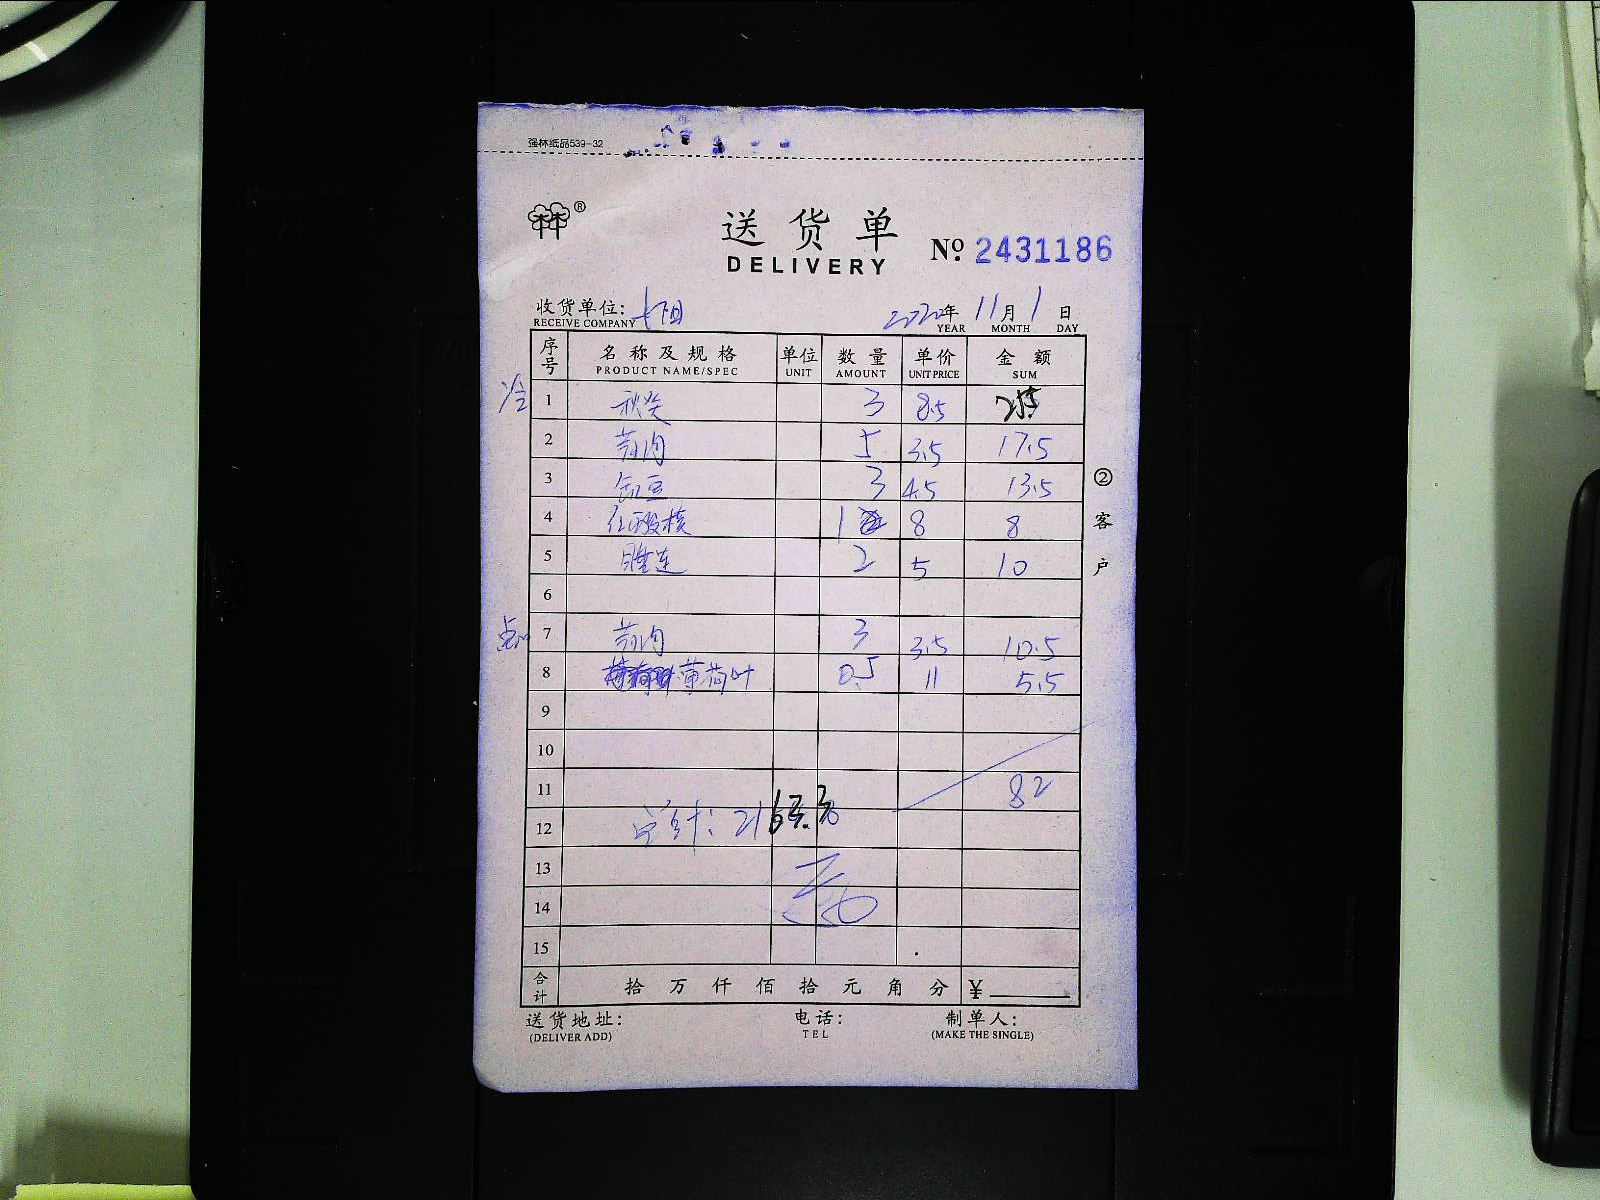 强林纸品539-32
®
送货单
DELIVERY
№ 2431186
收货单位:
RECEIVE COMPANY
2020年 11月 1日
YEAR MONTH DAY
序号 名称及规格 单位 数量 单价 金额
PRODUCT NAME/SPEC UNIT AMOUNT UNIT PRICE SUM
冷 1 秋葵 3 8.5 25.5
2 3 5 3.5 17.5
3 豆 3 4.5 13.5
4 1 8 8
5 2 5 10
6
点 7 3 3.5 10.5
8 薄荷叶 0.5 11 5.5
9
10
11 82
12 总计:
13
14
15
合计 拾 万 仟 佰 拾 元 角 分 ¥
送货地址: 电话: 制单人:
(DELIVER ADD) TEL (MAKE THE SINGLE)
②客户